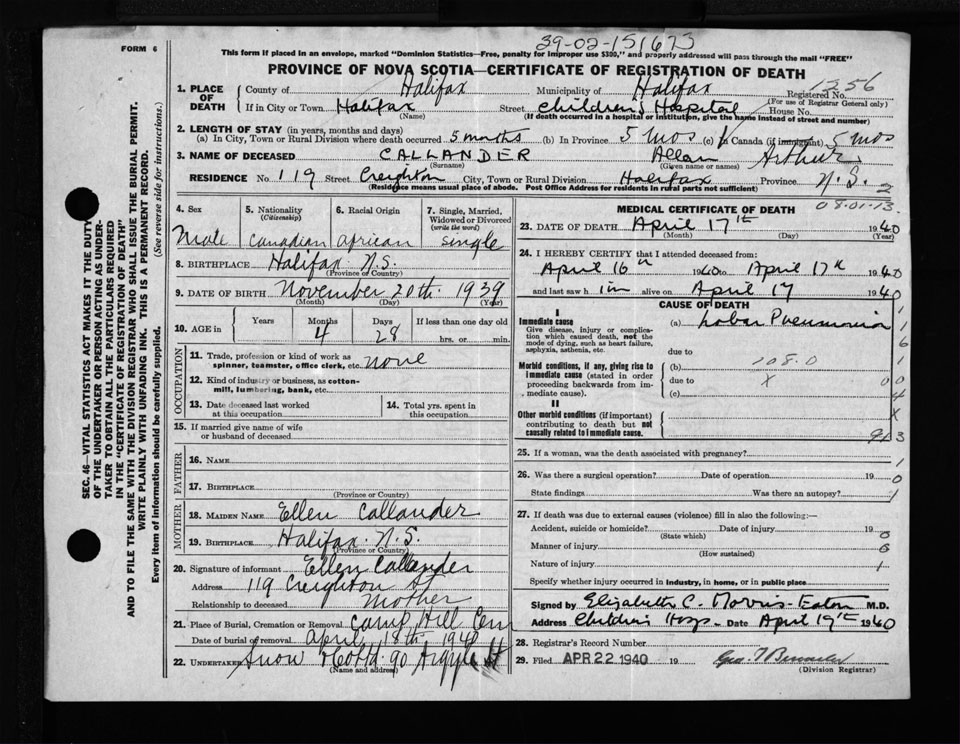 39-02-151673
FORM 6
This form if placed in an envelope, marked "Dominion Statistics—Free, penalty for improper use $300," and properly addressed will pass through the mail "FREE"
PROVINCE OF NOVA SCOTIA—CERTIFICATE OF REGISTRATION OF DEATH
1. PLACE OF DEATH
County of Halifax Municipality of Halifax Registered No. 1256
(For use of Registrar General only)
If in City or Town Halifax Street Children's Hospital House No.
(Name) (If death occurred in a hospital or institution, give the name instead of street and number)
2. LENGTH OF STAY (in years, months and days)
(a) In City, Town or Rural Division where death occurred 5 months (b) In Province 5 mos (c) In Canada (if immigrant) 5 mos
3. NAME OF DECEASED CALLANDER Allan Arthur
(Surname) (Given name or names)
RESIDENCE No. 119 Street Creighton City, Town or Rural Division Halifax Province N.S.
(Residence means usual place of abode. Post Office Address for residents in rural parts not sufficient)
08-01-13
4. Sex
Male
5. Nationality
(Citizenship)
Canadian
6. Racial Origin
African
7. Single, Married, Widowed or Divorced
(write the word)
Single
8. BIRTHPLACE Halifax N.S.
(Province or Country)
9. DATE OF BIRTH November 20th 1939
(Month) (Day) (Year)
10. AGE in
Years Months Days If less than one day old
4 28 hrs. or min.
OCCUPATION
11. Trade, profession or kind of work as spinner, teamster, office clerk, etc. None
12. Kind of industry or business, as cotton-mill, lumbering, bank, etc.
13. Date deceased last worked at this occupation
14. Total yrs. spent in this occupation
15. If married give name of wife or husband of deceased
FATHER
16. Name
17. Birthplace
(Province or Country)
MOTHER
18. Maiden Name Ellen Callander
19. Birthplace Halifax N.S.
(Province or Country)
20. Signature of informant Ellen Callander
Address 119 Creighton St
Relationship to deceased Mother
21. Place of Burial, Cremation or Removal Camp Hill Cem
Date of burial or removal April 18th 1940
22. Undertaker Snow & Co Ltd. 90 Argyle St
(Name and address)
MEDICAL CERTIFICATE OF DEATH
23. DATE OF DEATH April 17th 1940
(Month) (Day) (Year)
24. I HEREBY CERTIFY that I attended deceased from:
April 16th 1940 to April 17th 1940
and last saw h im alive on April 17 1940
CAUSE OF DEATH
I
Immediate cause
Give disease, injury or complication which caused death, not the mode of dying, such as heart failure, asphyxia, asthenia, etc.
(a) Lobar Pneumonia
due to
Morbid conditions, if any, giving rise to immediate cause (stated in order proceeding backwards from immediate cause).
(b) 108.0
due to X
(c)
II
Other morbid conditions (if important) contributing to death but not causally related to immediate cause.
25. If a woman, was the death associated with pregnancy?
26. Was there a surgical operation? Date of operation 19
State findings Was there an autopsy?
27. If death was due to external causes (violence) fill in also the following:—
Accident, suicide or homicide? Date of injury 19
(State which)
Manner of injury
(How sustained)
Nature of injury
Specify whether injury occurred in industry, in home, or in public place
Signed by Elizabeth C. Morris-Eaton M.D.
Address Children's Hosp. Date April 19th 1940
28. Registrar's Record Number
29. Filed APR 22 1940 19
(Division Registrar)
SEC. 46—VITAL STATISTICS ACT MAKES IT THE DUTY
OF THE UNDERTAKER OR PERSON ACTING AS UNDER-
TAKER TO OBTAIN ALL THE PARTICULARS REQUIRED
IN THE "CERTIFICATE OF REGISTRATION OF DEATH"
AND TO FILE THE SAME WITH THE DIVISION REGISTRAR WHO SHALL ISSUE THE BURIAL PERMIT.
WRITE PLAINLY WITH UNFADING INK. THIS IS A PERMANENT RECORD.
Every item of information should be carefully supplied. (See reverse side for instructions.)